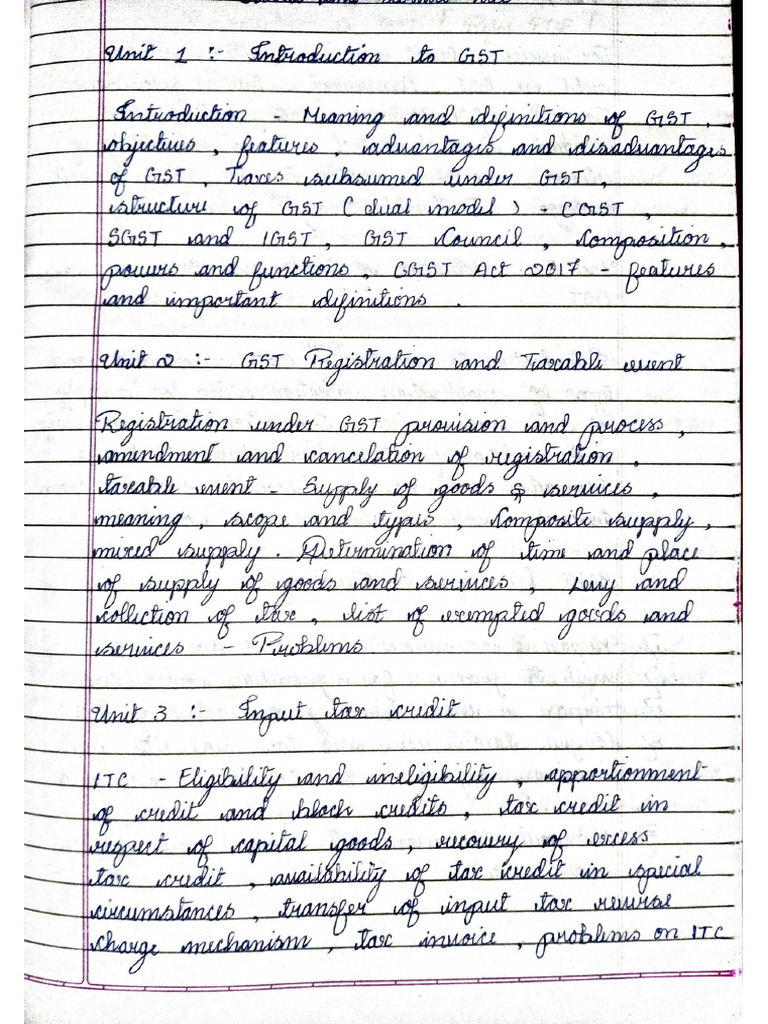 Unit 1 :- Introduction to GST
Introduction - Meaning and definitions of GST,
objectives, features, advantages and disadvantages
of GST, Taxes subsumed under GST,
structure of GST (dual model) - CGST,
SGST and IGST, GST Council, Composition,
powers and functions, CGST Act 2017 - features
and important definitions.
Unit 2 :- GST Registration and Taxable event
Registration under GST provision and process,
amendment and cancelation of registration,
taxable event - Supply of goods & services,
meaning, scope and types, Composite supply,
mixed supply. Determination of time and place
of supply of goods and services, Levy and
collection of tax, list of exempted goods and
services - Problems
Unit 3 :- Input tax credit
ITC - Eligibility and ineligibility, apportionment
of credit and block credits, tax credit in
respect of capital goods, recovery of excess
tax credit, availability of tax credit in special
circumstances, transfer of input tax reverse
charge mechanism, tax invoice, problems on ITC